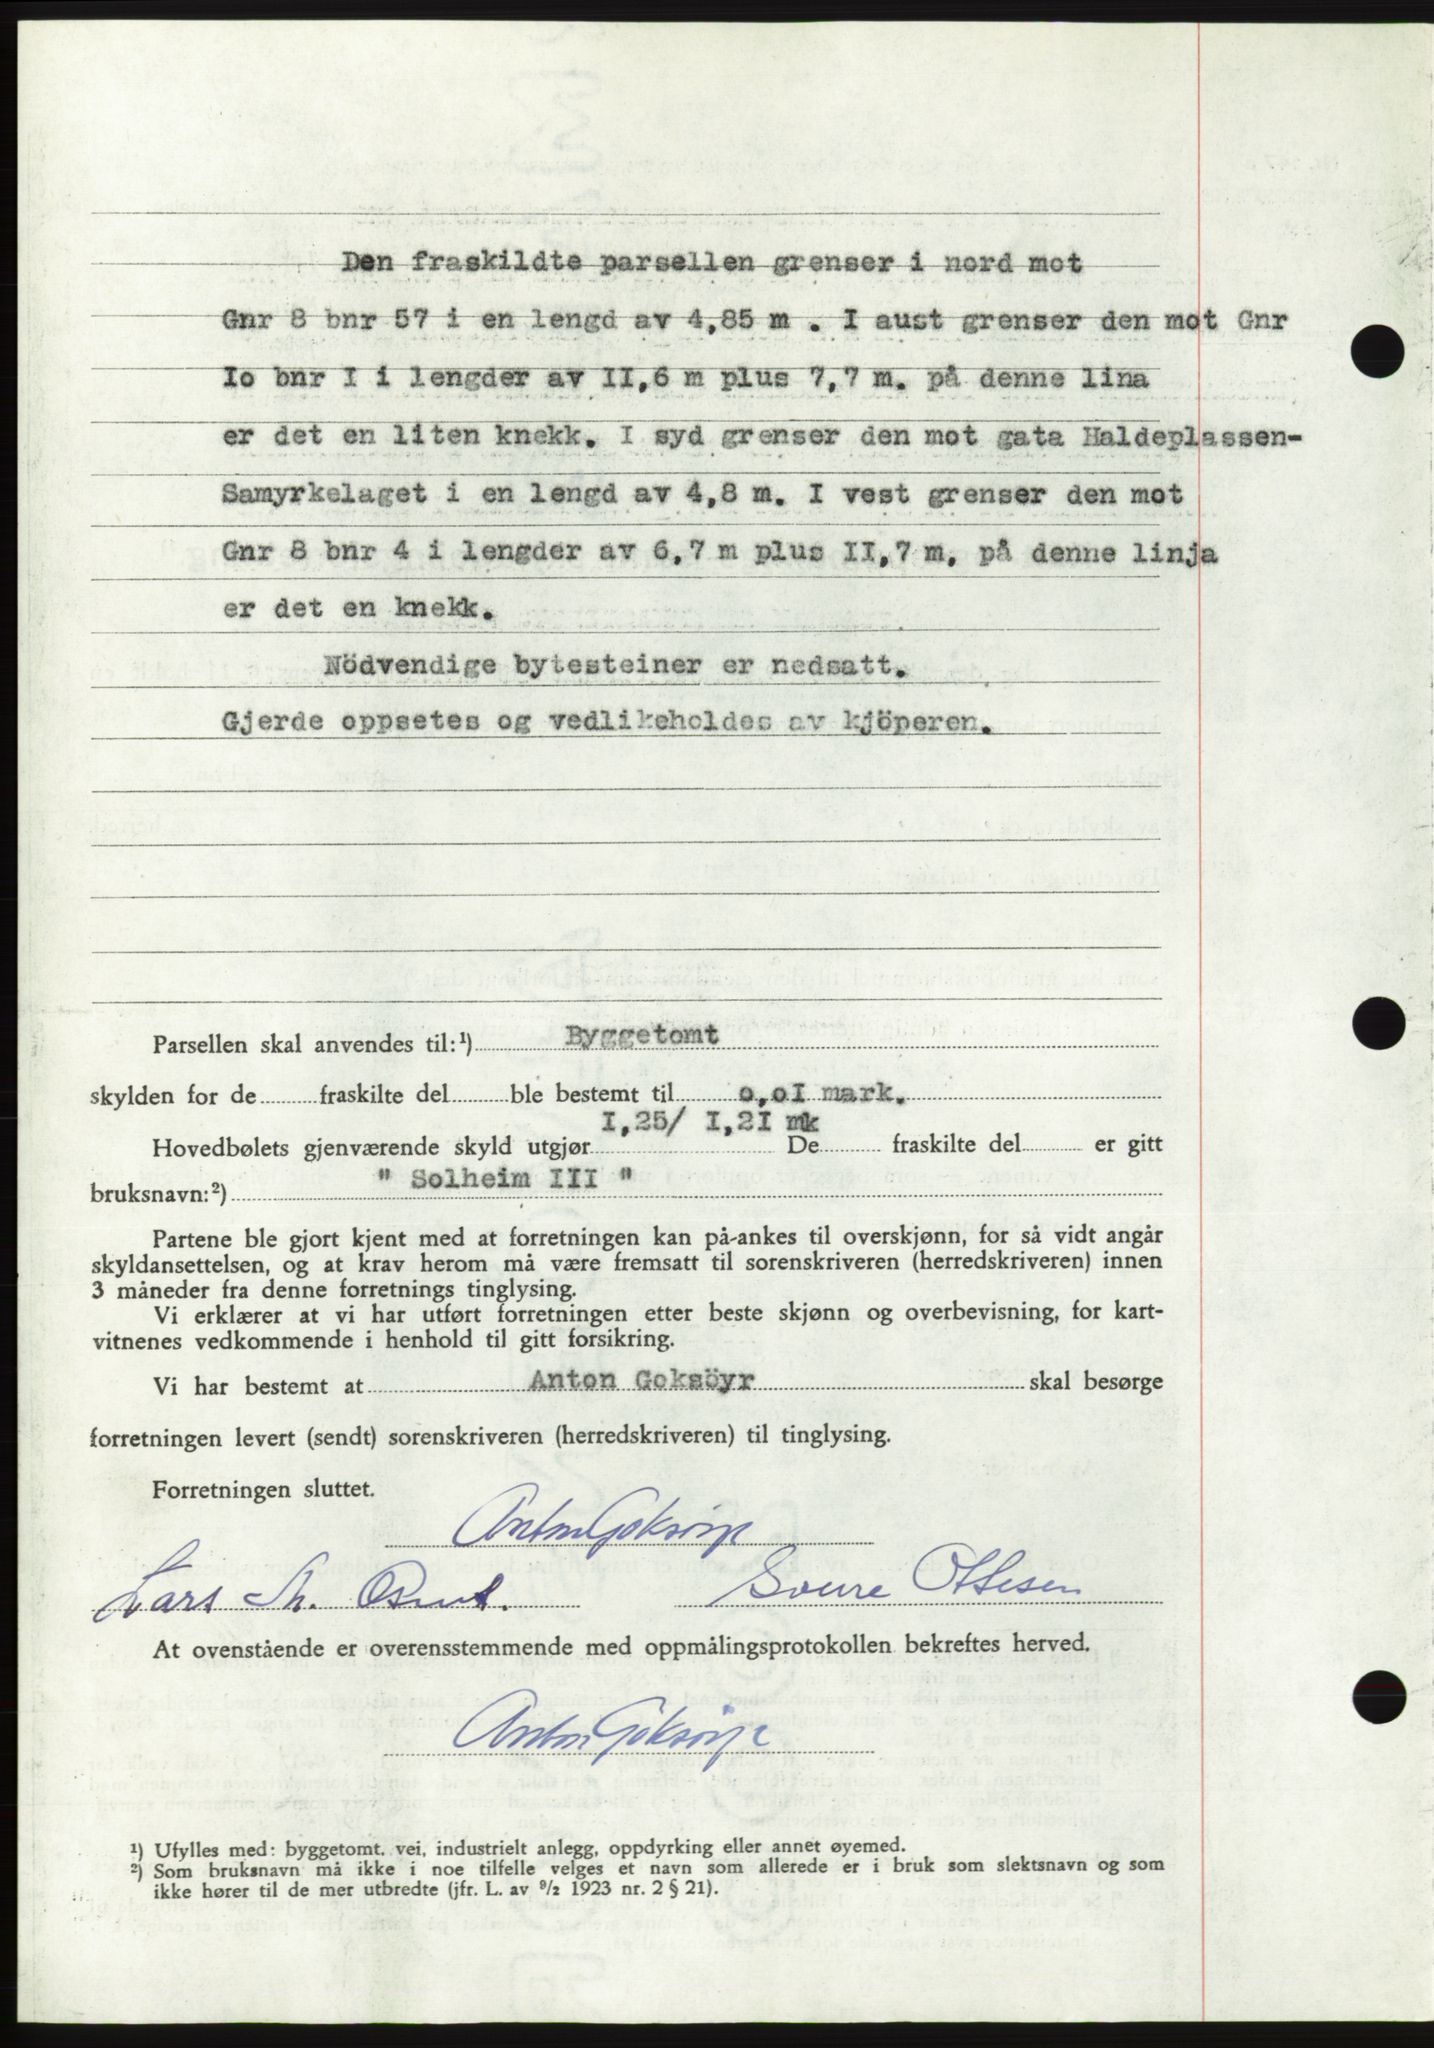 Den fraskildte parsellen grenser i nord mot
Gnr 8 bnr 57 i en lengd av 4,85 m . I aust grenser den mot Gnr
Io bnr I i lengder av II,6 m plus 7,7 m. på denne lina
er det en liten knekk. I syd grenser den mot gata Haldeplassen-
Samyrkelaget i en lengd av 4,8 m. I vest grenser den mot
Gnr 8 bnr 4 i lengder av 6,7 m plus II,7 m, på denne linja
er det en knekk.
Nödvendige bytesteiner er nedsatt.
Gjerde oppsetes og vedlikeholdes av kjöperen.
Parsellen skal anvendes til:¹) Byggetomt
skylden for de fraskilte del ble bestemt til o,oI mark.
I,25/ I,2I mk
Hovedbølets gjenværende skyld utgjør De fraskilte del er gitt
bruksnavn:²) " Solheim III "
Partene ble gjort kjent med at forretningen kan på-ankes til overskjønn, for så vidt angår
skyldansettelsen, og at krav herom må være fremsatt til sorenskriveren (herredskriveren) innen
3 måneder fra denne forretnings tinglysing.
Vi erklærer at vi har utført forretningen etter beste skjønn og overbevisning, for kart-
vitnenes vedkommende i henhold til gitt forsikring.
Vi har bestemt at Anton Goksöyr skal besørge
forretningen levert (sendt) sorenskriveren (herredskriveren) til tinglysing.
Forretningen sluttet.
Anton Goksöyr
Lars M. Osnes. Sverre Ottesen
At ovenstående er overensstemmende med oppmålingsprotokollen bekreftes herved.
Anton Goksöyr
¹) Ufylles med: byggetomt, vei, industrielt anlegg, oppdyrking eller annet øyemed.
²) Som bruksnavn må ikke i noe tilfelle velges et navn som allerede er i bruk som slektsnavn og som
ikke hører til de mer utbredte (jfr. L. av ⁹/₂ 1923 nr. 2 § 21).